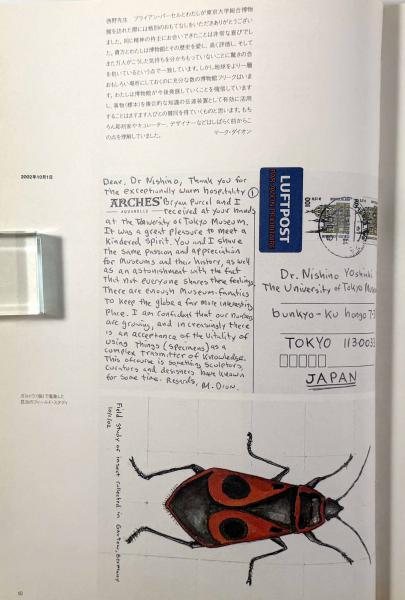 西野先生　ブライアン・パーセルとわたしが東京大学総合博物
館を訪れた際には格別のおもてなしをいただきありがとうござい
ました。同じ精神の持主にお会いできたことは非常な喜びでし
た。
まだ万人がこうした気持ちを分かちもっていないことに驚きの念
を抱いているという点で一致しています。しかし地球をより一層
おもしろい場所にしておくのに充分な数の博物館フリークはいま
す。わたしは博物館が今後発展していくことを確信しています
し、事物（標本）を複合的な知識の伝達装置として有効に活用
することはますます人びとの
ろん彫刻家やキュレーター、デザイナーなどはしばらく前からこ
の点を理解していました。
マーク・ダイオン
2002年10月1日
Dear, Dr Nishino, Thank you for
the exceptionally warm hospitality
ARCHES® Bryan Purcel and I
AQUARELLE received at your hands
at the University of Tokyo Museum.
It was a great pleasure to meet a
Kindered Spirit. You and I share
the same passion and appreciation
for Museums and their history, as well
as an astonishment with the fact
that not everyone shares these feelings.
There are enough Museum-fanatics
to keep the globe a far more interesting
place. I am confidant that our numbers
are growing, and increasingly there
is an acceptance of the vitality of
using things (specimens) as a
complex transmitter of Knowledge.
This ofcourse is something sculptors,
curators and designers have known
for some time. Regards, M. Dion.
①
LUFTPOST
PAR AVION PRIORITAIRE
100
Dr. Nishino Yoshiaki
The University of Tokyo Museum
bunkyo-Ku hongo 7-3
TOKYO 1130033
JAPAN
Field study of insect collected in Gartow, Germany
10/1/02